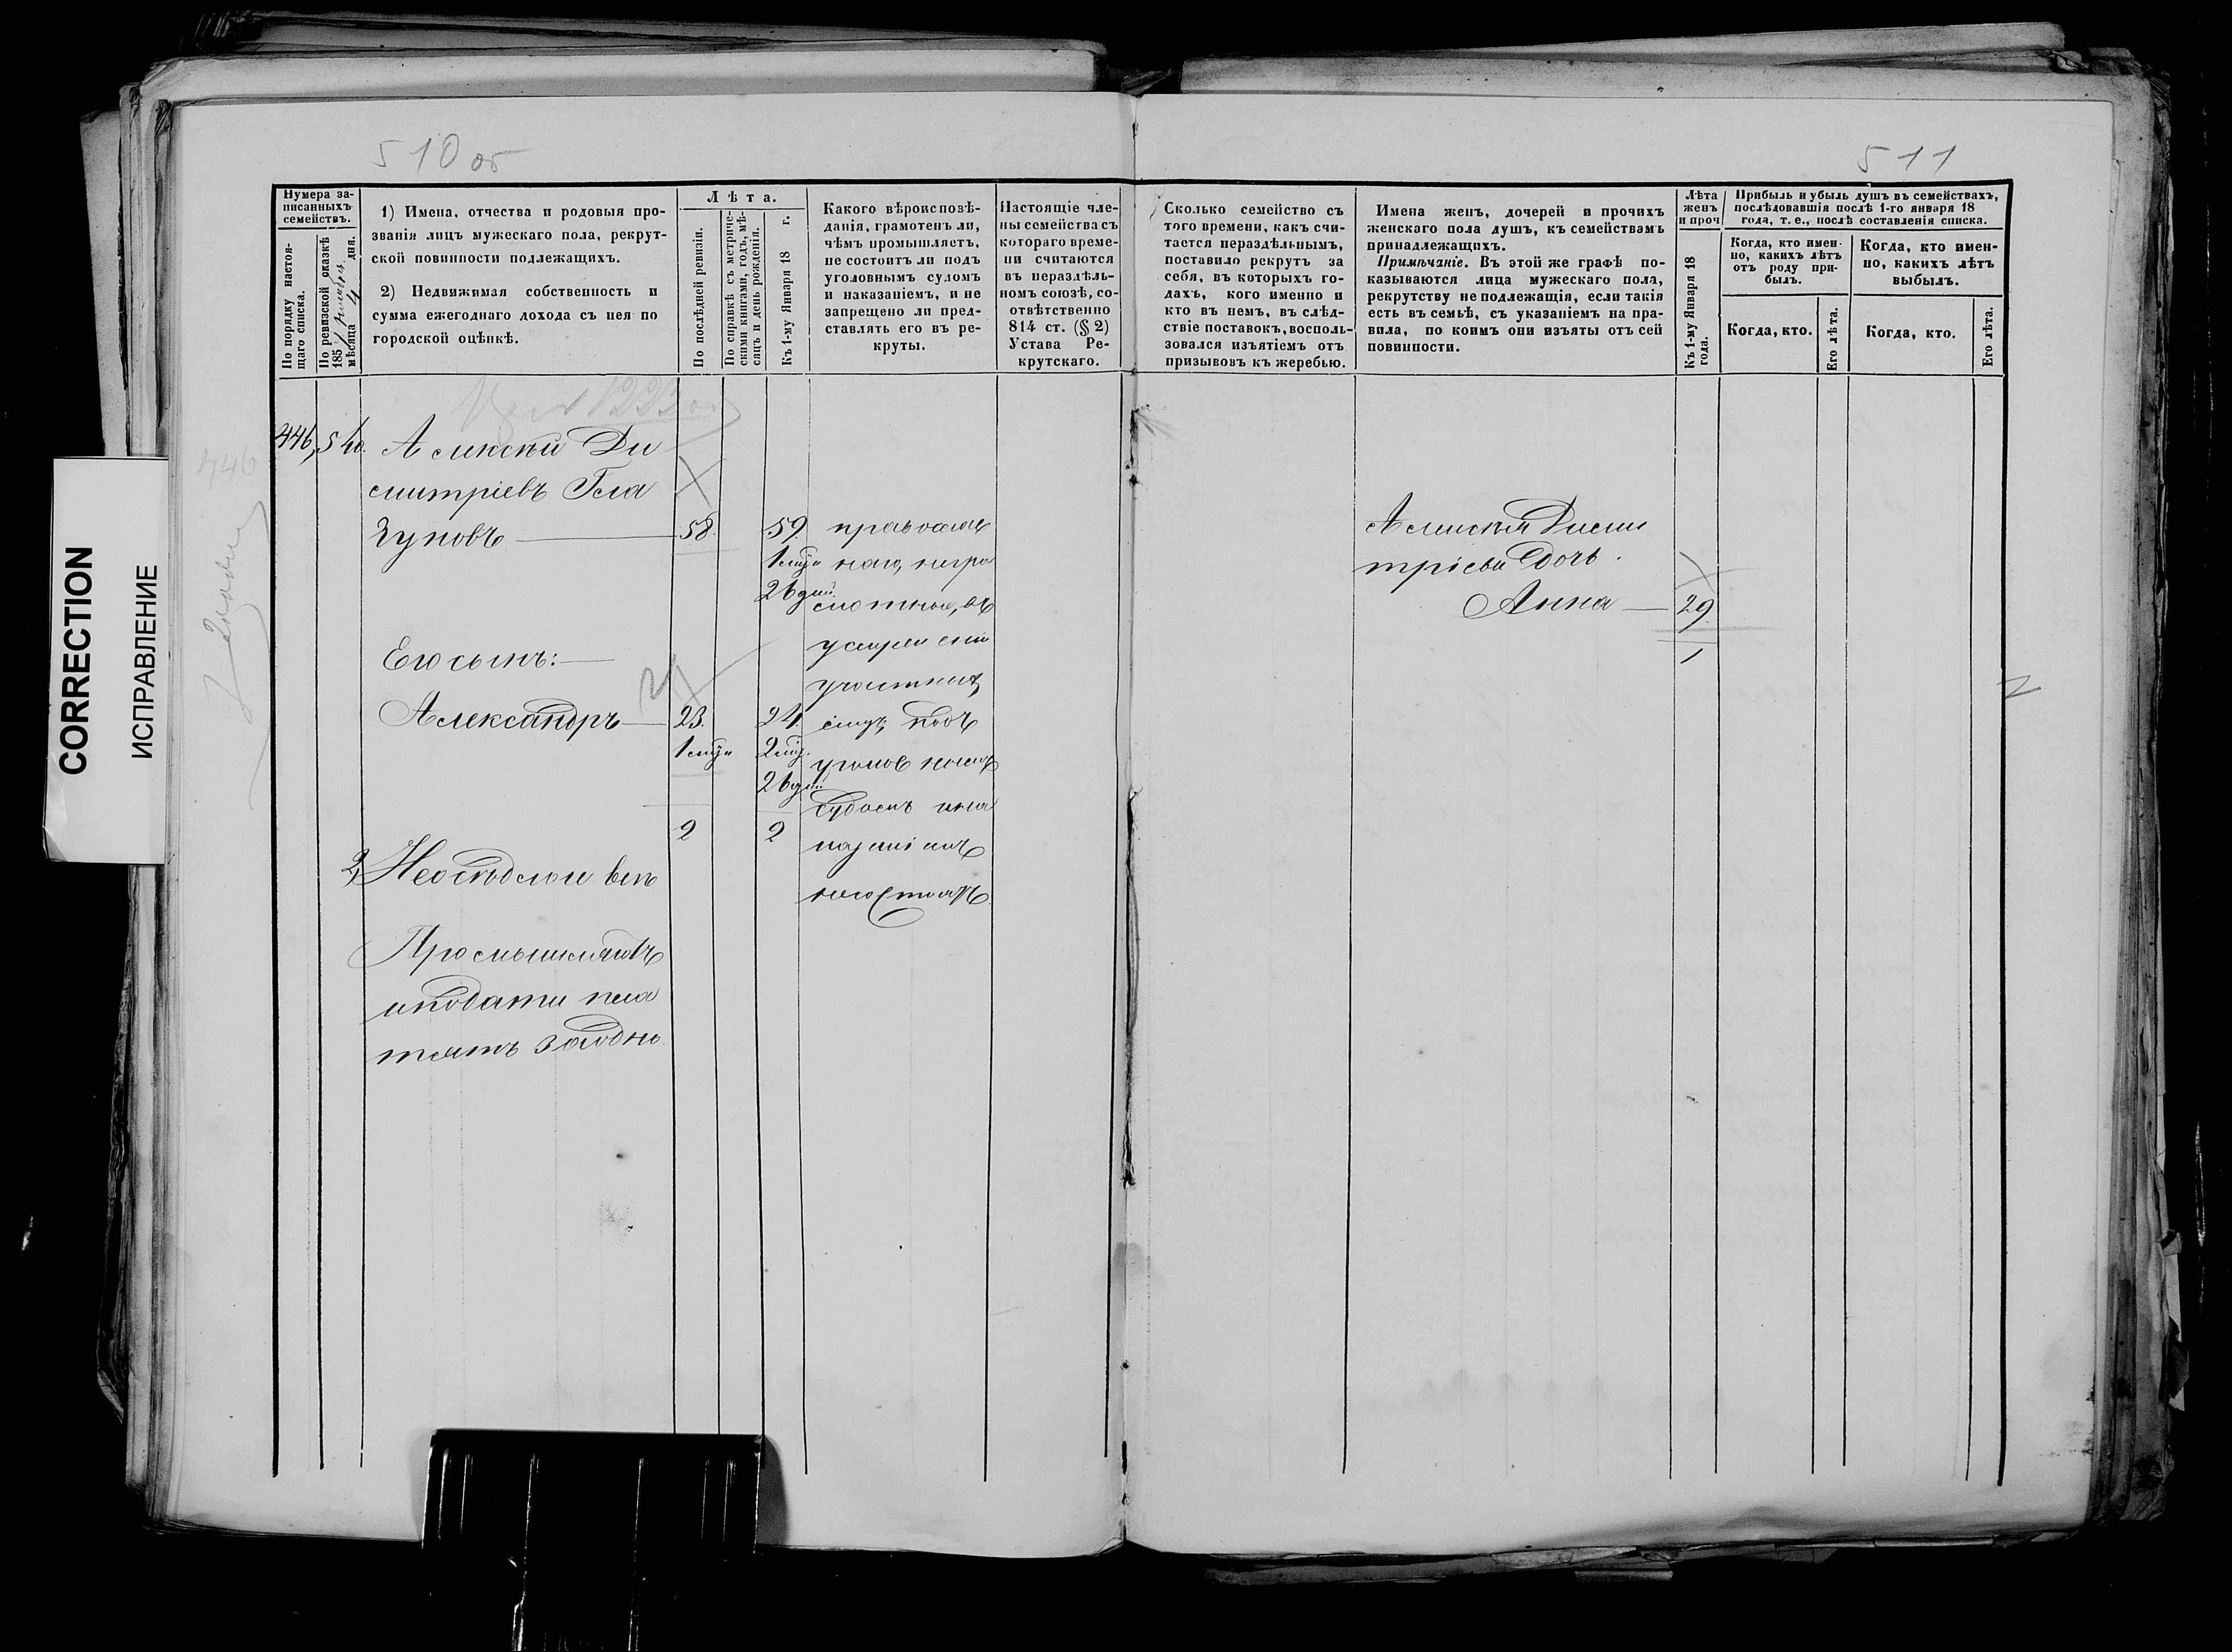 510 об
511
CORRECTION
ИСПРАВЛЕНИЕ
Нумера за-
писанныхъ
семействъ.
По порядку настоя-
щаго списка.
По ревизской сказкѣ
185
мѣсяца 4 дня.
1) Имена, отчества и родовыя про-
званія лицъ мужескаго пола, рекрут-
ской повинности подлежащихъ.
2) Недвижимая собственность и
сумма ежегоднаго дохода съ нея по
городской оцѣнкѣ.
Лѣта.
По послѣдней ревизіи.
По справкѣ съ метриче-
скими книгами, годъ, мѣ-
сяцъ и день рожденія.
Къ 1-му Января 18 г.
Какого вѣроисповѣ-
данія, грамотенъ ли,
чѣмъ промышляетъ,
не состоитъ ли подъ
уголовнымъ судомъ
и наказаніемъ, и не
запрещено ли пред-
ставлять его въ ре-
круты.
Настоящіе чле-
ны семейства съ
котораго време-
ни считаются
въ нераздѣль-
номъ союзѣ, со-
отвѣтственно
814 ст. (§ 2)
Устава Ре-
крутскаго.
Сколько семейство съ
того времени, какъ счи-
тается нераздѣльнымъ,
поставило рекрутъ за
себя, въ которыхъ го-
дахъ, кого именно и
кто въ немъ, въ слѣд-
ствіе поставокъ, восполь-
зовался изъятіемъ отъ
призывовъ къ жеребью.
Имена женъ, дочерей и прочихъ
женскаго пола душъ, къ семействамъ
принадлежащихъ.
Примѣчаніе. Въ этой же графѣ по-
казываются лица мужескаго пола,
рекрутству не подлежащія, если такія
есть въ семьѣ, съ указаніемъ на пра-
вила, по коимъ они изъяты отъ сей
повинности.
Лѣта
женъ
и проч
Къ 1-му Января 18
года.
Прибыль и убыль душъ въ семействахъ,
послѣдовавшія послѣ 1-го января 18
года, т. е., послѣ составленія списка.
Когда, кто имен-
но, какихъ лѣтъ
отъ роду при-
былъ.
Когда, кто имен-
но, какихъ лѣтъ
выбылъ.
Когда, кто.
Его лѣта.
Когда, кто.
Его лѣта.
446
446, 540. Алексѣй Ди
митріевъ Гла
зуновъ 58. 59.
26 дней
Его сынъ:
Александръ 23. 24.
26 дней
2 2
православ
наго, негра
мотные, въ
подъ
уголовнымъ
судомъ и на
казаніемъ
несостоятъ
Промышляютъ
и подати пла
тятъ заодно
Алексѣя Дмит
тріева дочь
Анна 29.
1